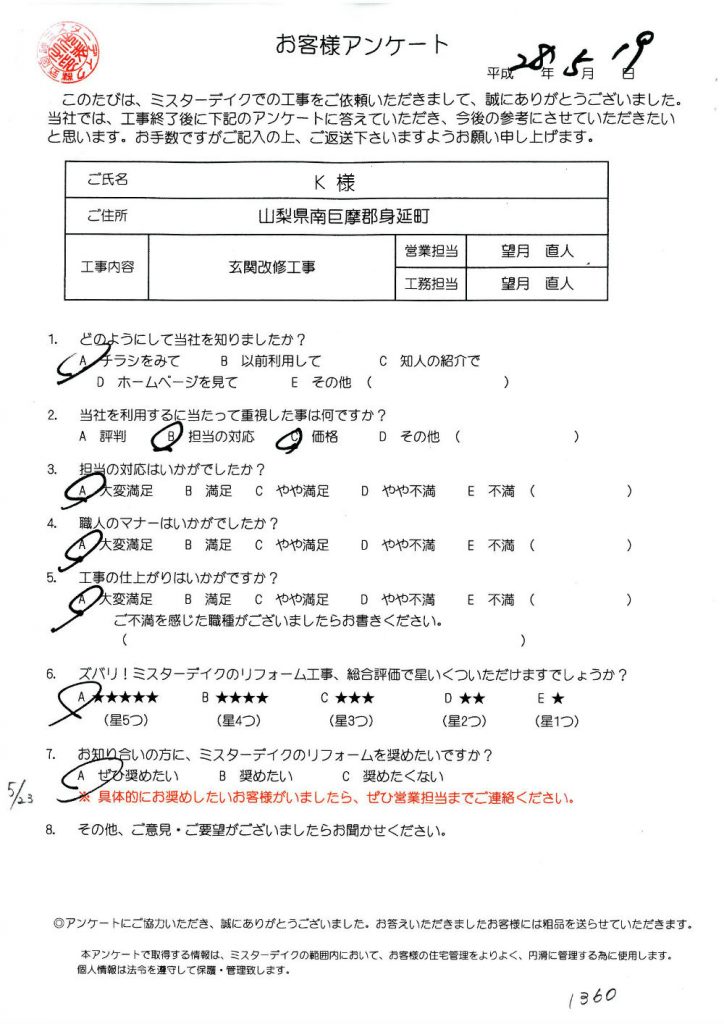 お客様アンケート
平成 28 年 5 月 19 日
このたびは、ミスターデイクでの工事をご依頼いただきまして、誠にありがとうございました。
当社では、工事終了後に下記のアンケートに答えていただき、今後の参考にさせていただきたい
と思います。お手数ですがご記入の上、ご返送下さいますようお願い申し上げます。
ご氏名 K 様
ご住所 山梨県南巨摩郡身延町
工事内容 玄関改修工事 営業担当 望月 直人
工務担当 望月 直人
1. どのようにして当社を知りましたか?
A チラシをみて B 以前利用して C 知人の紹介で
D ホームページを見て E その他 ( )
2. 当社を利用するに当たって重視した事は何ですか?
A 評判 B 担当の対応 C 価格 D その他 ( )
3. 担当の対応はいかがでしたか?
A 大変満足 B 満足 C やや満足 D やや不満 E 不満 ( )
4. 職人のマナーはいかがでしたか?
A 大変満足 B 満足 C やや満足 D やや不満 E 不満 ( )
5. 工事の仕上がりはいかがですか?
A 大変満足 B 満足 C やや満足 D やや不満 E 不満 ( )
ご不満を感じた職種がございましたらお書きください。
( )
6. ズバリ!ミスターデイクのリフォーム工事、総合評価で星いくついただけますでしょうか?
A ★★★★★ B ★★★★ C ★★★ D ★★ E ★
(星5つ) (星4つ) (星3つ) (星2つ) (星1つ)
7. お知り合いの方に、ミスターデイクのリフォームを奨めたいですか?
A ぜひ奨めたい B 奨めたい C 奨めたくない
5/23
※ 具体的にお奨めしたいお客様がいましたら、ぜひ営業担当までご連絡ください。
8. その他、ご意見・ご要望がございましたらお聞かせください。
◎アンケートにご協力いただき、誠にありがとうございました。お答えいただきましたお客様には粗品を送らせていただきます。
本アンケートで取得する情報は、ミスターデイクの範囲内において、お客様の住宅管理をよりよく、円滑に管理する為に使用します。
個人情報は法令を遵守して保護・管理致します。
1360